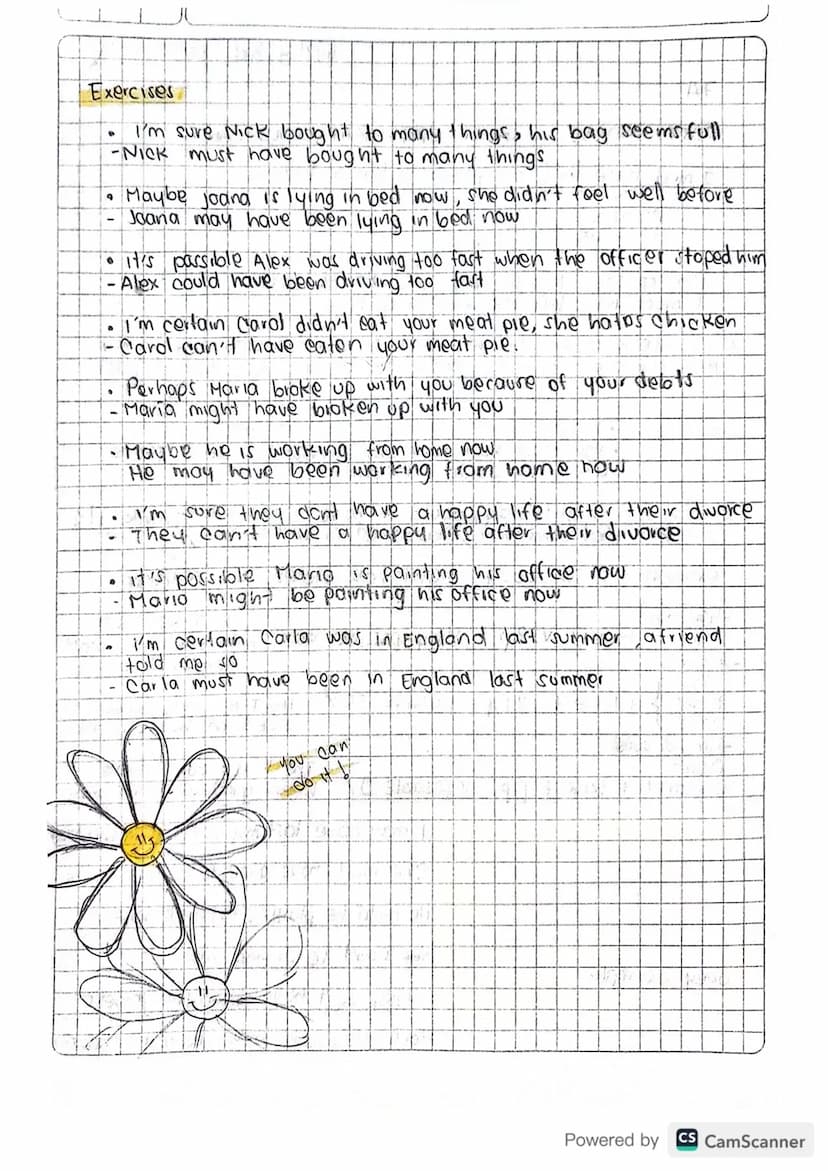 Exercises
• I'm sure Nick bought to many things, his bag seems full
- Nick must have bought to many things
• Maybe Joana is lying in bed now, she didn't feel well before
- Joana may have been lying in bed now
• it's passible Alex was driving too fast when the officer stoped him
- Alex could have been driving too fast
• I'm certain Carol didn't eat your meat pie, she hates chicken
- Carol can't have eaten your meat pie.
• Perhaps Maria broke up with you because of your debts
- Maria might have broken up with you
• Maybe he is working from home now
He may have been working from home now
• I'm sure they dont have a happy life after their divorce
- They can't have a happy life after their divorce
• it's possible Mario is painting his office now
- Mario might be painting his office now
• i'm certain Carla was in England last summer, a friend
told me so
- Carla must have been in England last summer
You can
do it!
Powered by CS CamScanner